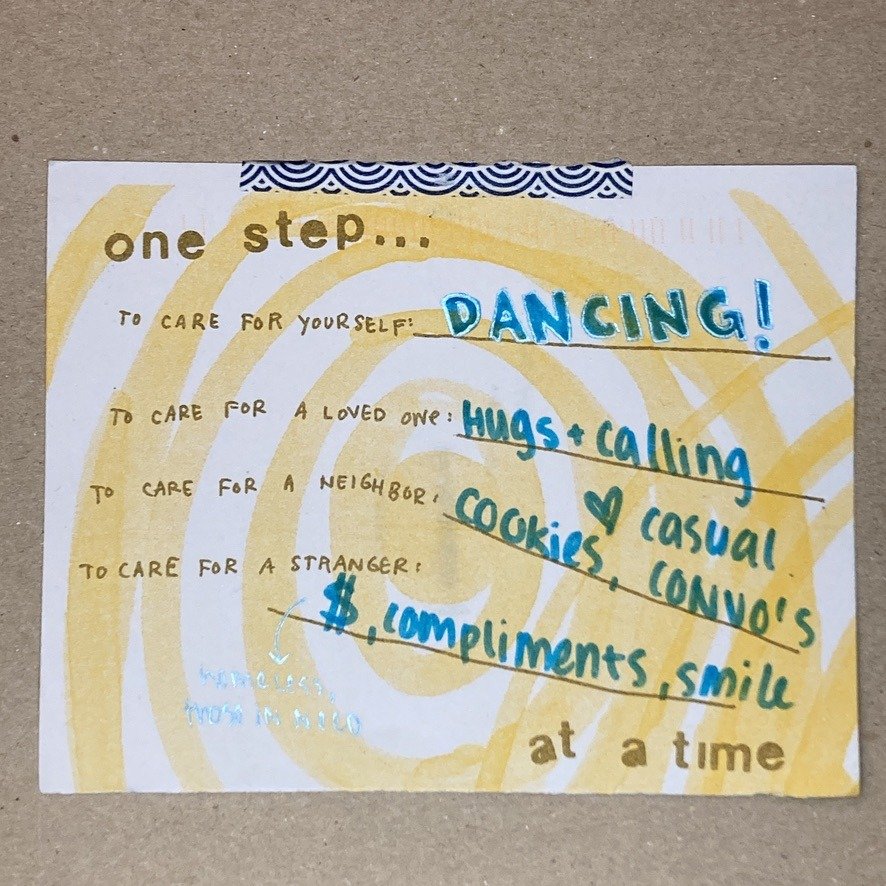 one step...
TO CARE FOR YOURSELF: DANCING!
TO CARE FOR A LOVED ONE: HUgs + calling
TO CARE FOR A NEIGHBOR: cookies, ♡ casual
CONVO'S
TO CARE FOR A STRANGER:
$, compliments, smile
homeless,
those in need
at a time